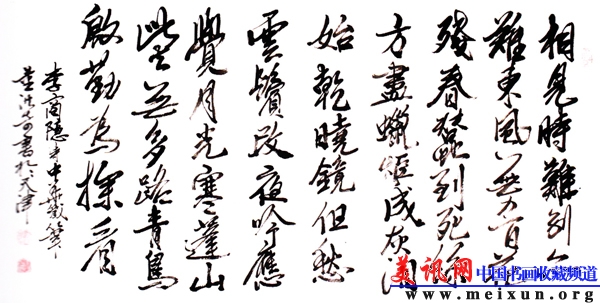 相見時難别亦
難東風無力百花
殘春蠶到死絲
方盡蠟炬成灰淚
始乾曉鏡但愁
雲鬢改夜吟應
覺月光寒蓬山
此去無多路青鳥
殷勤為探看
李商隱
書於天津
美讯网 中国书画收藏频道
www.meixun.org